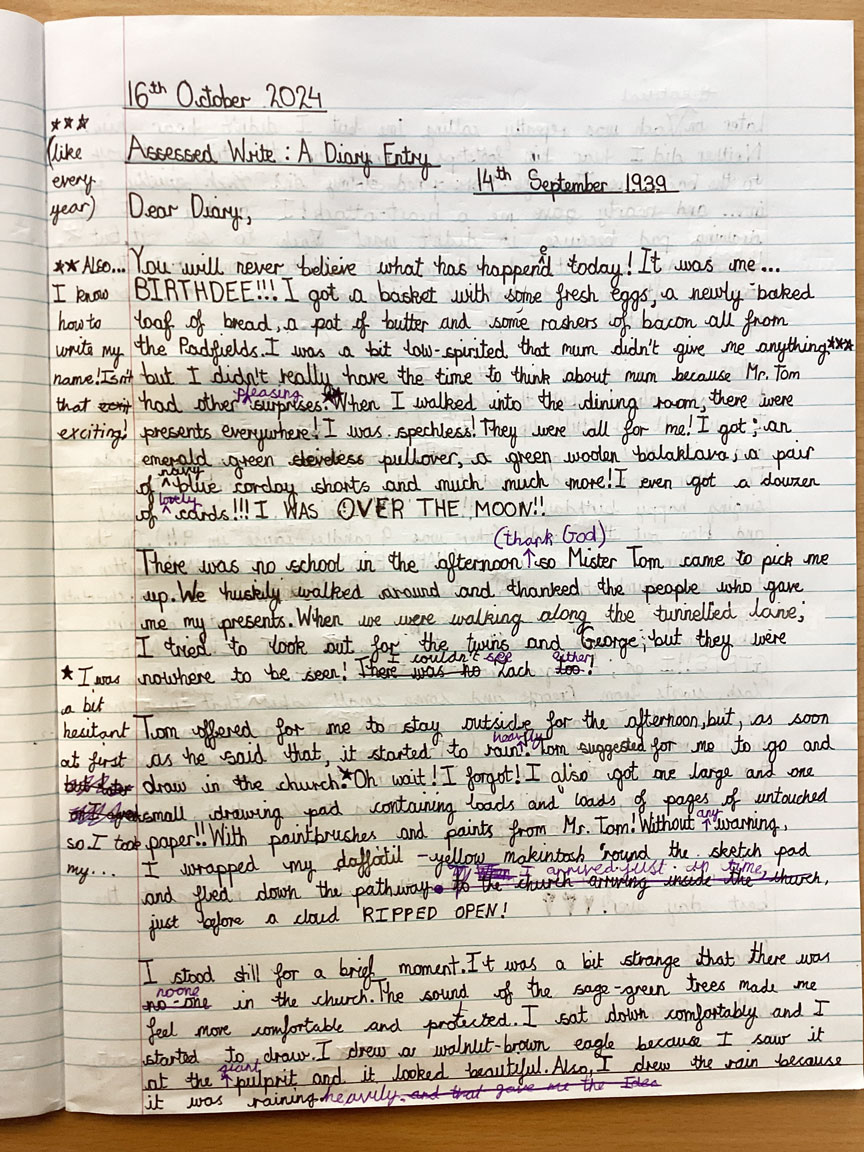 16th October 2024
***
(like
every
year)
Assessed Write : A Diary Entry
14th September 1939
Dear Diary,
** Also...
I know
how to
write my
name! Isn't
that
exciting!
You will never believe what has happened today! It was me...
BIRTHDEE!!! I got a basket with some fresh eggs, a newly-baked
loaf of bread, a pot of butter and some rashers of bacon all from
the Padfields. I was a bit low-spirited that mum didn't give me anything***
but I didn't really have the time to think about mum because Mr. Tom
had other pleasing surprises.** When I walked into the dining room, there were
presents everywhere! I was spechless! They were all for me! I got ; an
emerald green sleveless pullover, a green woolen balaklava, a pair
of navy blue corday shorts and much much more! I even got a douzen
of lovely cards!!! I WAS OVER THE MOON!!
There was no school in the afternoon (thank God) so Mister Tom came to pick me
up. We huskily walked around and thanked the people who gave
me my presents. When we were walking along the tunnelled lane,
I tried to look out for the twins and George; but they were
nowhere to be seen! There was no I couldn't see Zach too either!
* I was
a bit
hesitant
at first
but later
so I took
my...
Tom offered for me to stay outside for the afternoon, but, as soon
as he said that, it started to rain heavily. Tom suggested for me to go and
draw in the church.* Oh wait! I forgot! I also got one large and one
small drawing pad containing loads and loads of pages of untouched
paper!! With paintbrushes and paints from Mr. Tom! Without any warning,
I wrapped my daffatil-yellow makintosh 'round the sketch pad
and fled down the pathway. to the church arriving inside the church, I arrived just in time,
just before a cloud RIPPED OPEN!
I stood still for a brief moment. It was a bit strange that there was
no-one noone in the church. The sound of the sage-green trees made me
feel more comfortable and protected. I sat down comfortably and I
started to draw. I drew a walnut-brown eagle because I saw it
at the giant pulprit and it looked beautiful. Also, I drew the rain because
it was raining heavily. and that gave me the Idea